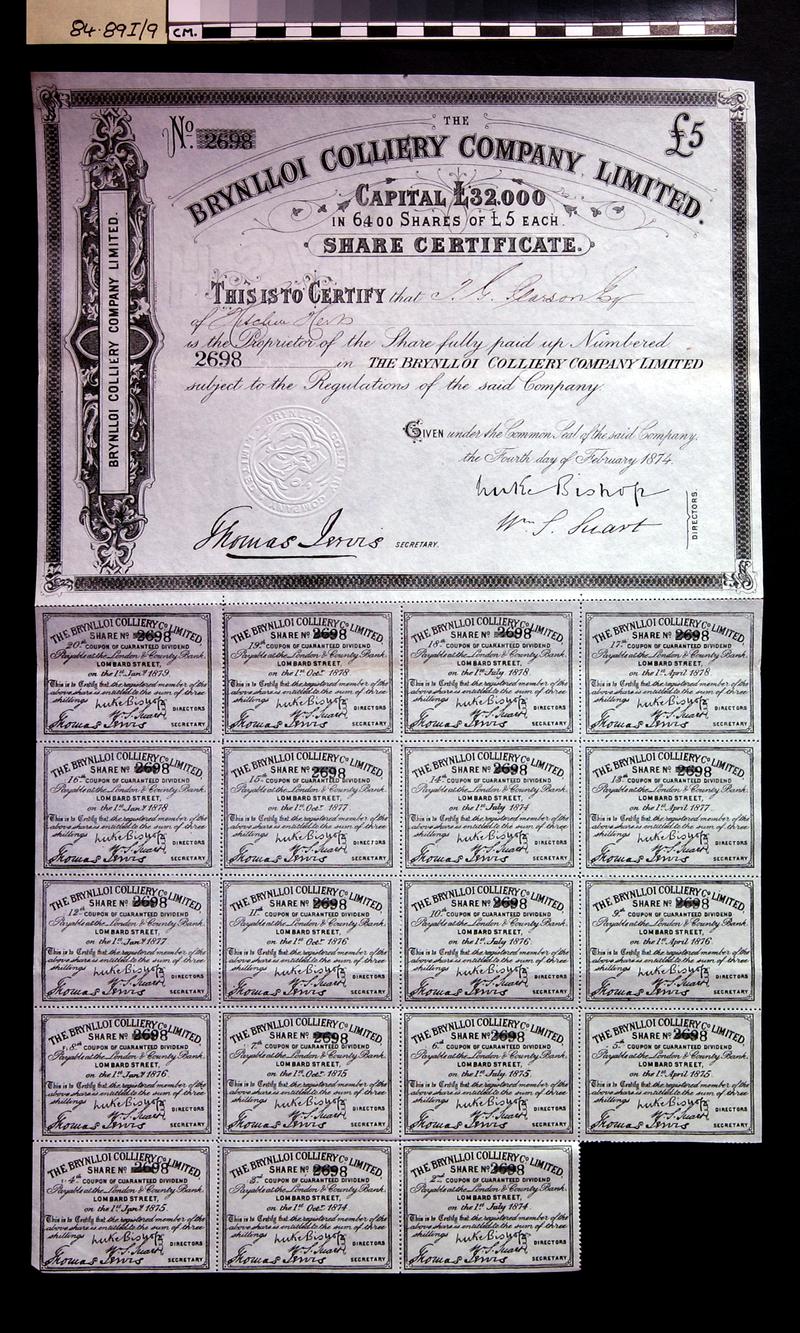 84.89I/9
CM.
No. 2698
£5
THE
BRYNLLOI COLLIERY COMPANY LIMITED.
CAPITAL £32.000
IN 6400 SHARES OF £5 EACH.
SHARE CERTIFICATE.
BRYNLLOI COLLIERY COMPANY LIMITED.
THIS IS TO CERTIFY that
of Hitchin Herts
is the Proprietor of the Share fully paid up Numbered
2698 in THE BRYNLLOI COLLIERY COMPANY LIMITED
subject to the Regulations of the said Company.
GIVEN under the Common Seal of the said Company,
the Fourth day of February 1874.
Luke Bishop
Wm. S. Suart
DIRECTORS.
Thomas Jervis SECRETARY.
THE BRYNLLOI COLLIERY Co. LIMITED,
SHARE No. 2698
20th COUPON OF GUARANTEED DIVIDEND
Payable at the London & County Bank.
LOMBARD STREET,
on the 1st Jany. 1879.
This is to Certify that the registered member of the
above share is entitled to the sum of three
shillings Luke Bishop
Wm. S. Suart DIRECTORS
Thomas Jervis SECRETARY
THE BRYNLLOI COLLIERY Co. LIMITED,
SHARE No. 2698
19th COUPON OF GUARANTEED DIVIDEND
Payable at the London & County Bank.
LOMBARD STREET,
on the 1st Octr. 1878
This is to Certify that the registered member of the
above share is entitled to the sum of three
shillings Luke Bishop
Wm. S. Suart DIRECTORS
Thomas Jervis SECRETARY
THE BRYNLLOI COLLIERY Co. LIMITED,
SHARE No. 2698
18th COUPON OF GUARANTEED DIVIDEND
Payable at the London & County Bank.
LOMBARD STREET,
on the 1st July 1878.
This is to Certify that the registered member of the
above share is entitled to the sum of three
shillings Luke Bishop
Wm. S. Suart DIRECTORS
Thomas Jervis SECRETARY
THE BRYNLLOI COLLIERY Co. LIMITED,
SHARE No. 2698
17th COUPON OF GUARANTEED DIVIDEND
Payable at the London & County Bank.
LOMBARD STREET,
on the 1st April 1878
This is to Certify that the registered member of the
above share is entitled to the sum of three
shillings Luke Bishop
Wm. S. Suart DIRECTORS
Thomas Jervis SECRETARY
THE BRYNLLOI COLLIERY Co. LIMITED,
SHARE No. 2698
16th COUPON OF GUARANTEED DIVIDEND
Payable at the London & County Bank.
LOMBARD STREET,
on the 1st Jany. 1878
This is to Certify that the registered member of the
above share is entitled to the sum of three
shillings Luke Bishop
Wm. S. Suart DIRECTORS
Thomas Jervis SECRETARY
THE BRYNLLOI COLLIERY Co. LIMITED,
SHARE No. 2698
15th COUPON OF GUARANTEED DIVIDEND
Payable at the London & County Bank.
LOMBARD STREET,
on the 1st Octr. 1877
This is to Certify that the registered member of the
above share is entitled to the sum of three
shillings Luke Bishop
Wm. S. Suart DIRECTORS
Thomas Jervis SECRETARY
THE BRYNLLOI COLLIERY Co. LIMITED,
SHARE No. 2698
14th COUPON OF GUARANTEED DIVIDEND
Payable at the London & County Bank.
LOMBARD STREET,
on the 1st July 1874
This is to Certify that the registered member of the
above share is entitled to the sum of three
shillings Luke Bishop
Wm. S. Suart DIRECTORS
Thomas Jervis SECRETARY
THE BRYNLLOI COLLIERY Co. LIMITED,
SHARE No. 2698
13th COUPON OF GUARANTEED DIVIDEND
Payable at the London & County Bank.
LOMBARD STREET,
on the 1st April 1877.
This is to Certify that the registered member of the
above share is entitled to the sum of three
shillings Luke Bishop
Wm. S. Suart DIRECTORS
Thomas Jervis SECRETARY
THE BRYNLLOI COLLIERY Co. LIMITED,
SHARE No. 2698
12th COUPON OF GUARANTEED DIVIDEND
Payable at the London & County Bank.
LOMBARD STREET,
on the 1st Jany. 1877
This is to Certify that the registered member of the
above share is entitled to the sum of three
shillings Luke Bishop
Wm. S. Suart DIRECTORS
Thomas Jervis SECRETARY
THE BRYNLLOI COLLIERY Co. LIMITED,
SHARE No. 2698
11th COUPON OF GUARANTEED DIVIDEND
Payable at the London & County Bank.
LOMBARD STREET,
on the 1st Octr. 1876
This is to Certify that the registered member of the
above share is entitled to the sum of three
shillings Luke Bishop
Wm. S. Suart DIRECTORS
Thomas Jervis SECRETARY
THE BRYNLLOI COLLIERY Co. LIMITED,
SHARE No. 2698
10th COUPON OF GUARANTEED DIVIDEND
Payable at the London & County Bank.
LOMBARD STREET,
on the 1st July 1876
This is to Certify that the registered member of the
above share is entitled to the sum of three
shillings Luke Bishop
Wm. S. Suart DIRECTORS
Thomas Jervis SECRETARY
THE BRYNLLOI COLLIERY Co. LIMITED,
SHARE No. 2698
9th COUPON OF GUARANTEED DIVIDEND
Payable at the London & County Bank.
LOMBARD STREET,
on the 1st April 1876
This is to Certify that the registered member of the
above share is entitled to the sum of three
shillings Luke Bishop
Wm. S. Suart DIRECTORS
Thomas Jervis SECRETARY
THE BRYNLLOI COLLIERY Co. LIMITED,
SHARE No. 2698
8th COUPON OF GUARANTEED DIVIDEND
Payable at the London & County Bank.
LOMBARD STREET,
on the 1st Jany. 1876
This is to Certify that the registered member of the
above share is entitled to the sum of three
shillings Luke Bishop
Wm. S. Suart DIRECTORS
Thomas Jervis SECRETARY
THE BRYNLLOI COLLIERY Co. LIMITED,
SHARE No. 2698
7th COUPON OF GUARANTEED DIVIDEND
Payable at the London & County Bank.
LOMBARD STREET,
on the 1st Octr. 1875
This is to Certify that the registered member of the
above share is entitled to the sum of three
shillings Luke Bishop
Wm. S. Suart DIRECTORS
Thomas Jervis SECRETARY
THE BRYNLLOI COLLIERY Co. LIMITED,
SHARE No. 2698
6th COUPON OF GUARANTEED DIVIDEND
Payable at the London & County Bank.
LOMBARD STREET,
on the 1st July 1875.
This is to Certify that the registered member of the
above share is entitled to the sum of three
shillings Luke Bishop
Wm. S. Suart DIRECTORS
Thomas Jervis SECRETARY
THE BRYNLLOI COLLIERY Co. LIMITED,
SHARE No. 2698
5th COUPON OF GUARANTEED DIVIDEND
Payable at the London & County Bank.
LOMBARD STREET,
on the 1st April 1875.
This is to Certify that the registered member of the
above share is entitled to the sum of three
shillings Luke Bishop
Wm. S. Suart DIRECTORS
Thomas Jervis SECRETARY
THE BRYNLLOI COLLIERY Co. LIMITED,
SHARE No. 2698
4th COUPON OF GUARANTEED DIVIDEND
Payable at the London & County Bank.
LOMBARD STREET,
on the 1st Jany. 1875.
This is to Certify that the registered member of the
above share is entitled to the sum of three
shillings Luke Bishop
Wm. S. Suart DIRECTORS
Thomas Jervis SECRETARY
THE BRYNLLOI COLLIERY Co. LIMITED,
SHARE No. 2698
3rd COUPON OF GUARANTEED DIVIDEND
Payable at the London & County Bank.
LOMBARD STREET,
on the 1st Octr. 1874
This is to Certify that the registered member of the
above share is entitled to the sum of three
shillings Luke Bishop
Wm. S. Suart DIRECTORS
Thomas Jervis SECRETARY
THE BRYNLLOI COLLIERY Co. LIMITED,
SHARE No. 2698
2nd COUPON OF GUARANTEED DIVIDEND
Payable at the London & County Bank.
LOMBARD STREET,
on the 1st July 1874
This is to Certify that the registered member of the
above share is entitled to the sum of three
shillings Luke Bishop
Wm. S. Suart DIRECTORS
Thomas Jervis SECRETARY